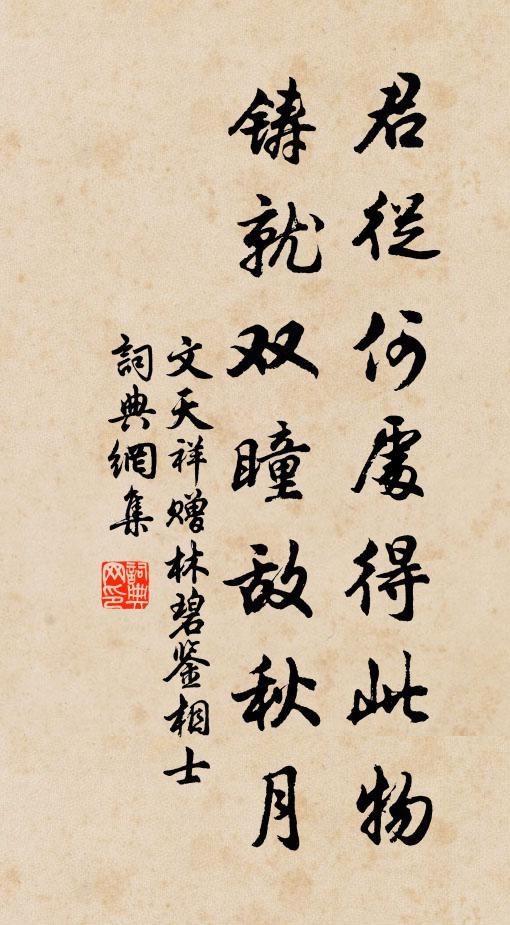 君從何處得此物
鑄就双瞳敌秋月
文天祥赠林碧鉴相士
詞典網集
詞典网印